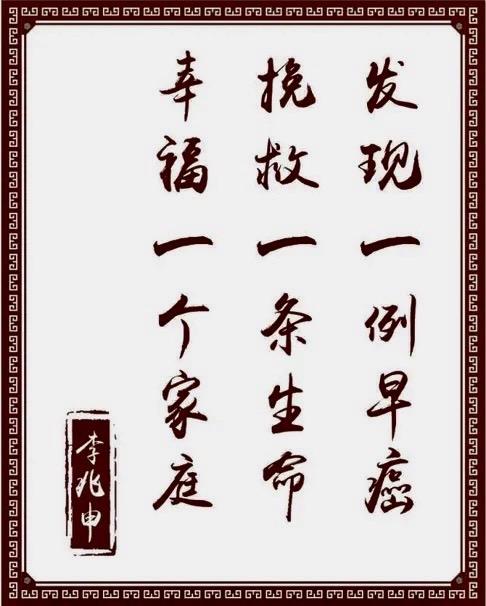 发现一例早癌
挽救一条生命
幸福一个家庭
李兆申